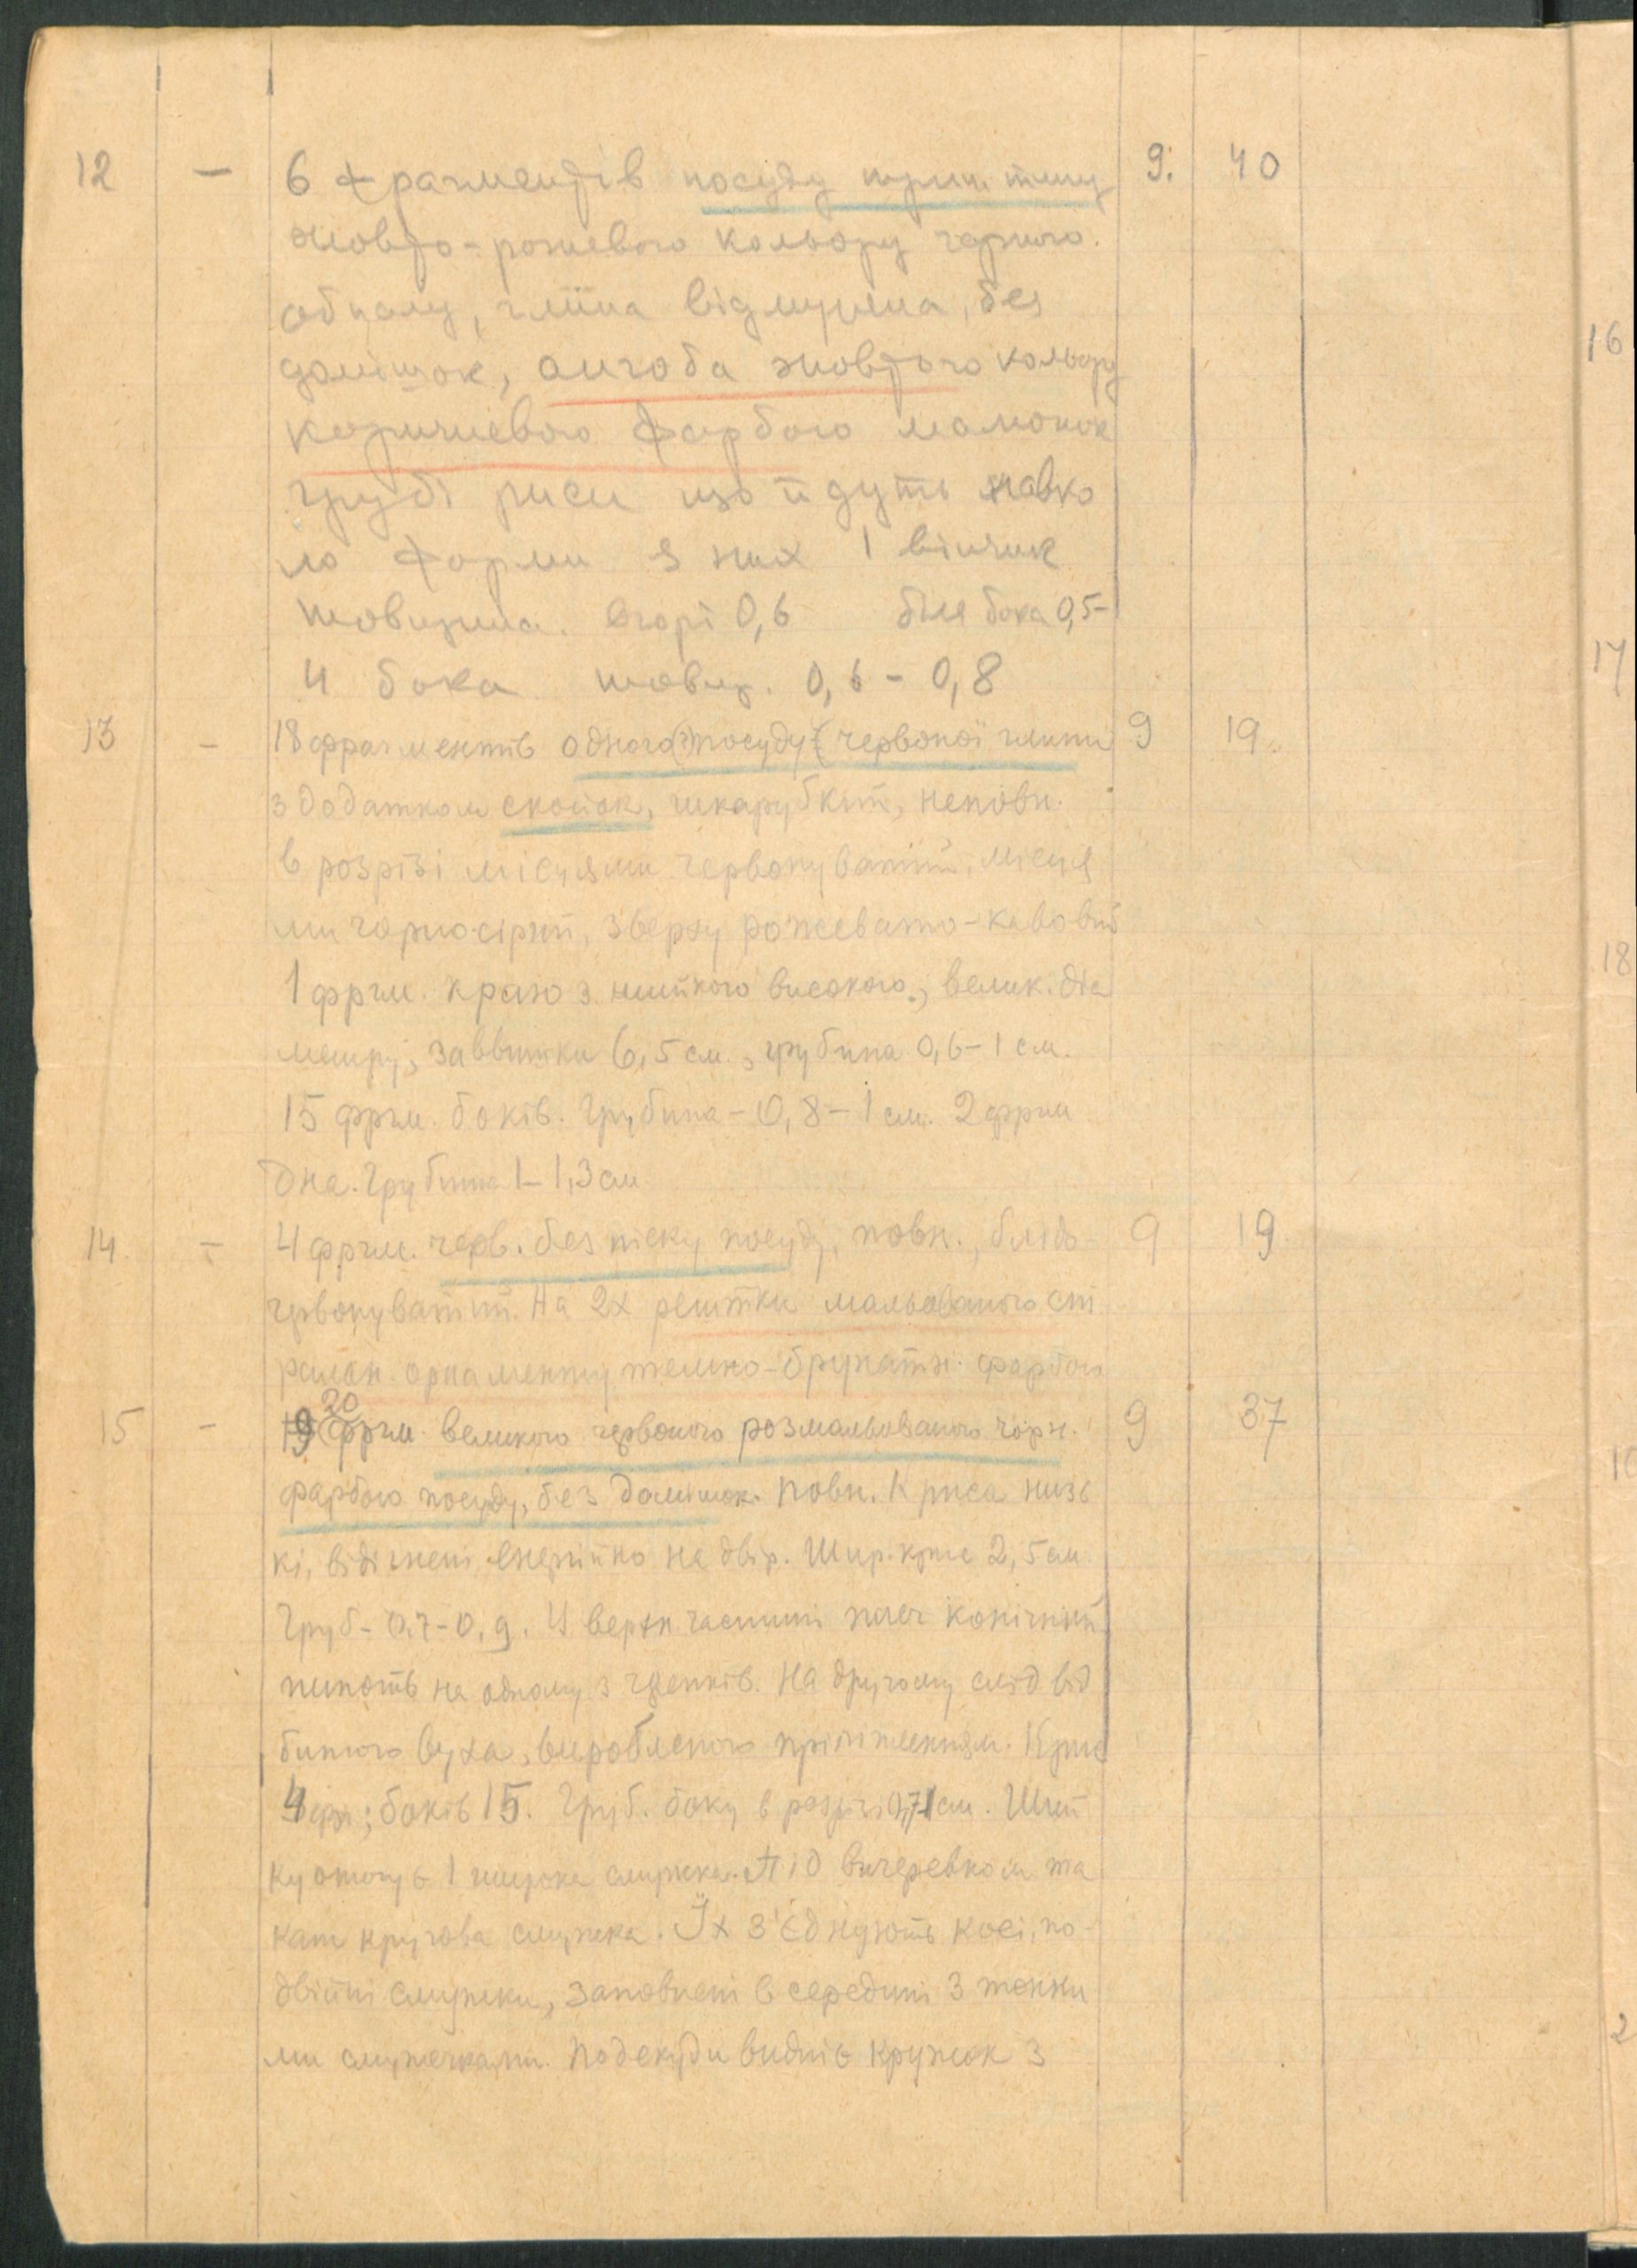 12 — 6 фрагментів посуду 9. 40
жовто-рожевого кольору гарного
обпалу, глина відмулена, без
домішок, ангоба жовтого кольору
коричневою фарбою мальонок
грубі риси що йдуть навко
ло форми з них 1 вінчик
товщина. вгорі 0,6 біля бока 0,5-
4 бока товщ. 0,6 - 0,8
13 — 18 фрагментів одного(?) посуду червоної глини 9 19.
з додатком скойок, шкарубкий, неповн.
в розрізі місцями червонуватий, місця
ми чорно-сірий, зверху рожевато-кавовий
1 фргм. краю з шийкого високого, велик. діа
метру, заввишки 6,5 см., грубина 0,6-1 см.
15 фргм. боків. Грубина - 0,8-1 см. 2 фргм
дна. Грубина 1-1,3 см
14. — 4 фргм. черв. без піску посуду, повн., блідо- 9 19
червонуватий. На 2х рештки мальованого спі
ральн. орнаменту темно-брунатн. фарбою
15 — 19 20 фргм. великого червоного розмальованого чорн. 9 37
фарбою посуду, без домішок. повн. Криса низь
кі, відігнені енергійно на двір. Шир. крис 2,5 см.
Груб - 0,7-0,9. У верхн. частині плеч конічний
пипоть на одному з черепків. На другому слід від
битого вуха, виробленого приліпленням. Крис
4 фр; боків 15. Груб. боку в розрізі 0,7-1 см. Ший
ку оточує 1 широка смужка. Під вичеревком та
кат кругова смужка. Їх з'єднують косі, по-
двійні смужки, заповнені в середині 3 тонки
ми смужечками. Подекуди видніє кружок з
16
17
18